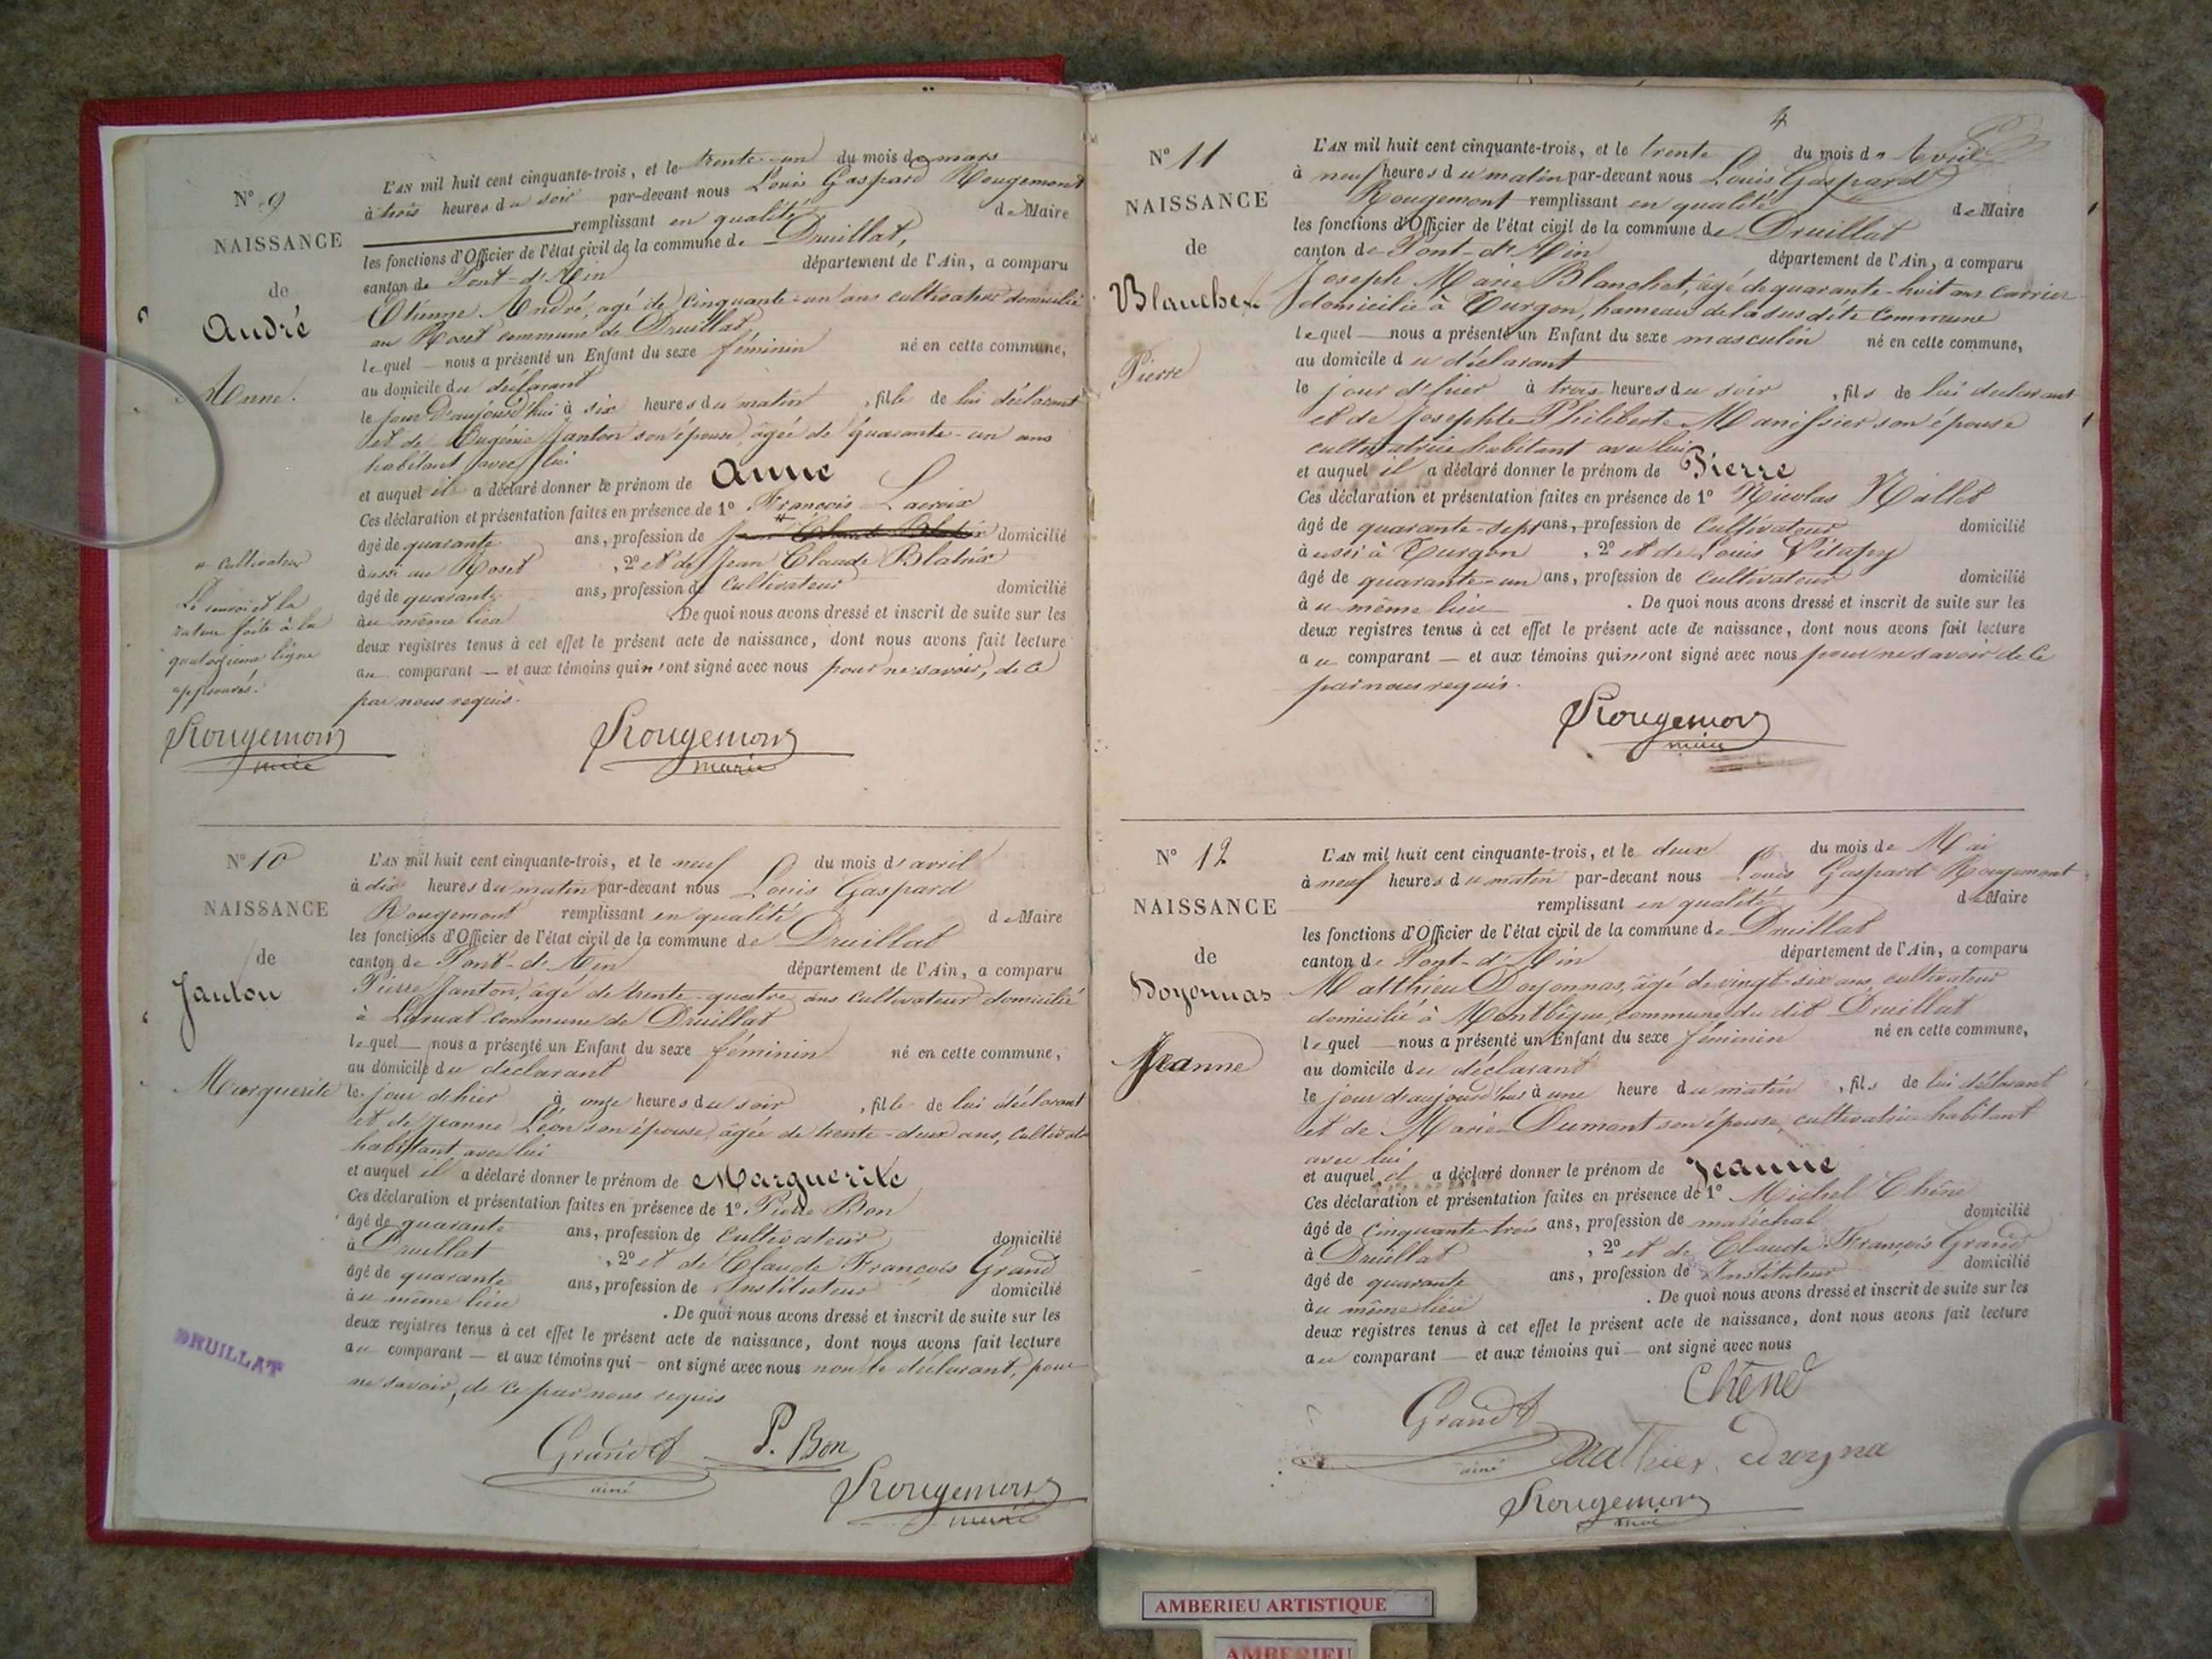 N° 9
NAISSANCE
de
André
Anne.
L'AN mil huit cent cinquante-trois, et le trente-un du mois de mars
à trois heures du soir par-devant nous Louis Gaspard Rougemont
remplissant en qualité de Maire
les fonctions d'Officier de l'état civil de la commune de Druillat,
canton de Pont-d'Ain département de l'Ain, a comparu
Etienne André, agé de cinquante-un ans cultivateur domicilié
au Roset commune de Druillat,
lequel nous a présenté un Enfant du sexe féminin né en cette commune,
au domicile du déclarant
le jour d'aujourd'hui à six heures du matin, fille de lui déclarant
et de Eugénie Janton son épouse, âgée de quarante-un ans
habitant avec lui
et auquel il a déclaré donner le prénom de Anne
Ces déclaration et présentation faites en présence de 1° François Lacroix
âgé de quarante ans, profession de domicilié
à assi au Roset, 2° et de Jean Claude Blatrix
âgé de quarante ans, profession de cultivateur domicilié
au même lieu. De quoi nous avons dressé et inscrit de suite sur les
deux registres tenus à cet effet le présent acte de naissance, dont nous avons fait lecture
au comparant — et aux témoins qui n'ont signé avec nous pour ne savoir, de ce
par nous requis.
# cultivateur
Le renvoi et la
rature faite à la
quatorzieme ligne
approuvés.
Rougemont
maire
Rougemont
maire
N° 10
NAISSANCE
de
Janton
Marguerite
L'AN mil huit cent cinquante-trois, et le neuf du mois d'avril
à dix heures du matin par-devant nous Louis Gaspard
Rougemont remplissant en qualité de Maire
les fonctions d'Officier de l'état civil de la commune de Druillat
canton de Pont-d'Ain département de l'Ain, a comparu
Pierre Janton, âgé de trente-quatre ans cultivateur domicilié
à commune de Druillat
lequel nous a présenté un Enfant du sexe féminin né en cette commune,
au domicile du déclarant
le jour d'hier à onze heures du soir, fille de lui déclarant
et de Jeanne Léon son épouse, âgée de trente-deux ans,
habitant avec lui
et auquel il a déclaré donner le prénom de Marguerite
Ces déclaration et présentation faites en présence de 1° Pierre Bon
âgé de quarante ans, profession de cultivateur domicilié
à Druillat, 2° et de Claude François Grand
âgé de quarante ans, profession de Instituteur domicilié
au même lieu. De quoi nous avons dressé et inscrit de suite sur les
deux registres tenus à cet effet le présent acte de naissance, dont nous avons fait lecture
au comparant — et aux témoins qui — ont signé avec nous non le déclarant, pour
ne savoir, de ce par nous requis
DRUILLAT
Grand P. Bon
ainé
Rougemont
maire
4
N° 11
NAISSANCE
de
Blanchet
Pierre
L'AN mil huit cent cinquante-trois, et le trente du mois d'Avril
à neuf heures du matin par-devant nous Louis Gaspard
Rougemont remplissant en qualité de Maire
les fonctions d'Officier de l'état civil de la commune de Druillat
canton de Pont-d'Ain département de l'Ain, a comparu
Joseph Marie Blanchet, âgé de quarante-huit ans carrier
domicilié à Turgon, hameau de la susdite commune
lequel nous a présenté un Enfant du sexe masculin né en cette commune,
au domicile du déclarant
le jour d'hier à trois heures du soir, fils de lui déclarant
et de Josephte Philiberte Manissier son épouse
cultivatrice habitant avec lui
et auquel il a déclaré donner le prénom de Pierre
Ces déclaration et présentation faites en présence de 1° Nicolas Nallet
âgé de quarante-sept ans, profession de cultivateur domicilié
à Turgon, 2° et de Louis
âgé de quarante-un ans, profession de cultivateur domicilié
au même lieu. De quoi nous avons dressé et inscrit de suite sur les
deux registres tenus à cet effet le présent acte de naissance, dont nous avons fait lecture
au comparant — et aux témoins qui n'ont signé avec nous pour ne savoir de ce
par nous requis.
Rougemont
maire
N° 12
NAISSANCE
de
Doyonnas
Jeanne
L'AN mil huit cent cinquante-trois, et le deux du mois de Mai
à neuf heures du matin par-devant nous Louis Gaspard Rougemont
remplissant en qualité de Maire
les fonctions d'Officier de l'état civil de la commune de Druillat
canton de Pont-d'Ain département de l'Ain, a comparu
Matthieu Doyonnas, âgé de vingt-six ans, cultivateur
domicilié à Montbègue, commune du dit Druillat
lequel nous a présenté un Enfant du sexe féminin né en cette commune,
au domicile du déclarant
le jour d'aujourd'hui à une heure du matin, fils de lui déclarant
et de Marie Dumont son épouse, cultivatrice habitant
avec lui
et auquel il a déclaré donner le prénom de Jeanne
Ces déclaration et présentation faites en présence de 1° Michel Chêne
âgé de cinquante-trois ans, profession de maréchal domicilié
à Druillat, 2° et de Claude François Grand
âgé de quarante ans, profession de Instituteur domicilié
au même lieu. De quoi nous avons dressé et inscrit de suite sur les
deux registres tenus à cet effet le présent acte de naissance, dont nous avons fait lecture
au comparant — et aux témoins qui — ont signé avec nous
Chêne
Grand
ainé
Rougemont
AMBERIEU ARTISTIQUE
AMBERIEU